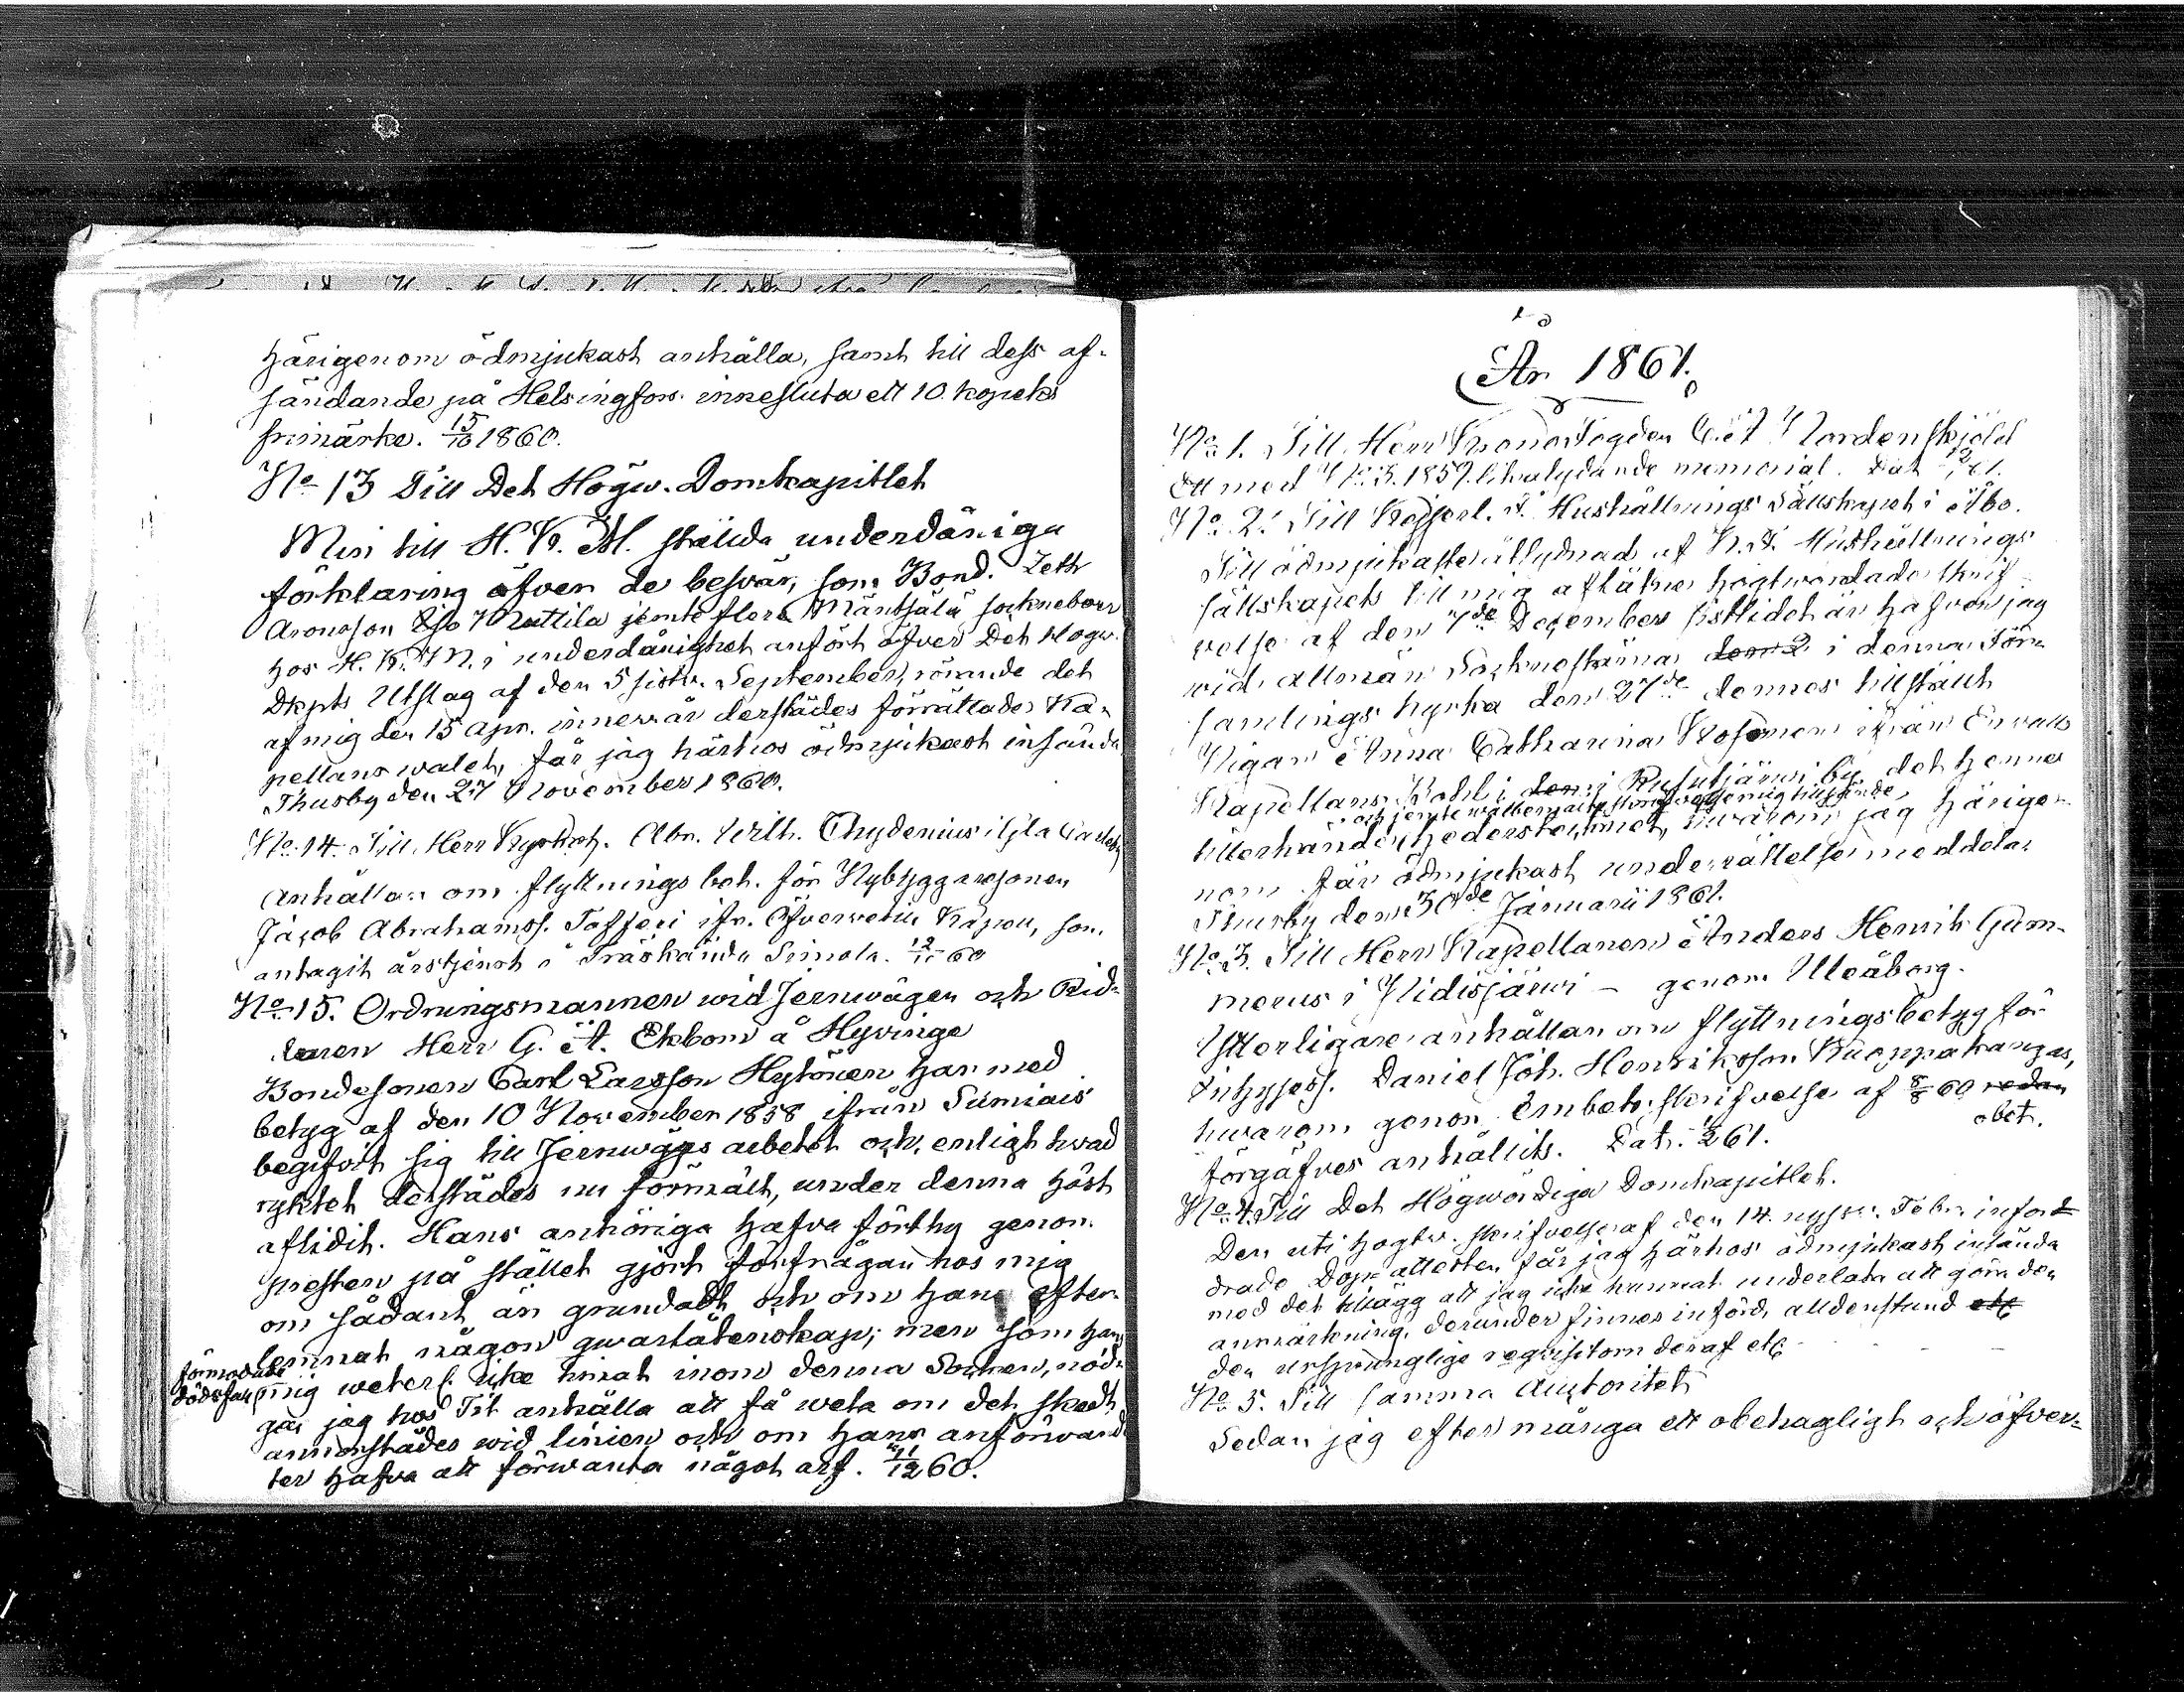 härigenom ödmjukast anhålla, samt till dess af-
sändande på Helsingfors innesluta ett 10 kopeks
frimärke. 15/10 1860.
No 13 Till Det Högw. Domkapitlet
Min till H. K. M. stälda underdåniga
förklaring öfver de beswär, som Bond. Zeth
Aronsson Ilso Mattila jemte flera Mäntsälä socknebor
hos H. K. M. i underdånighet anfört öfver Det Högw.
Dkpts Utslag af den 5 sistv. September, rörande det
af mig den 15 Apr. innew. år derstädes förrättade Ka-
pellans walet, får jag härhos ödmjukast insända
Thusby den 27 November 1860.
No 14. Till Herr Kyrkoh. Abr. Wilh. Chydenius i Gla Carleby
Anhållan om flyttnings bet. för Nybyggaresonen
Jacob Abrahamss. Tofferi ifr. Öfwerwetil Kapell, som
antagit årstjenst i Träskända Simola. 12/11 60
No 15. Ordningsmannen wid Jernwägen och Rid-
daren Herr G. A. Ekbom å Hyvinge
Bondesonen Carl Larsson Hytönen har med
betyg af den 10 November 1858 ifrån Sumiais
begifwit sig till Jernwägs arbetet och, enligt hwad
ryktet derstädes nu förmält, under denna höst
aflidit. Hans anhöriga hafva förthy genom
presten på stället gjort förfrågan hos mig
om sådant är grundadt och om han efter-
lemnat någon qwarlåtenskap; men som hans
förmodade
dödsfall mig weterl. icke timat inom denna Socken, nöd-
gas jag hos Tit anhålla att få weta om det skedt
annorstädes wid linien och om hans anförwand-
ter hafva att förwänta något arf. 11/12 60.
År 1861.
No 1. Till Herr Kronofogden C. A. Nordenskjöld
Ett med No 3. 1859. likalydande memorial. Dat 61.
No 2. Till Kejserl. F. Hushållnings Sällskapet i Åbo.
Till ödmjukaste åtlydnad af K. F. Hushållnings
sällskapets till mig aflåtna högtwördade skrif-
velse af den 7de December sistlidet år har jag
wid allmän Socknestämma den 2 i denna För-
samlings kyrka den 27de dennes tillstält
Pigan Anna Catharina Kosonen ifrån Enwalls
Kapellans Bohl i den i Rusutjärwi by det henne
och jemte wälbemälte skrifvelse mig tillsände
tillerkända Hederstecknet, hwarom jag härige-
nom får ödmjukast underrättelse meddela
Thusby den 30de Januarii 1861.
No 3. Till Herr Kapellanen Anders Henrik Gum-
merus i Pidisjärwi – genom Uleåborg.
Ytterligare anhållan om flyttningsbetyg för
Inhyses. Daniel Joh. Henriksson Kuoppakangas,
hwarom genom Embets skrifvelse af 8/8 60 redan
obet.
förgäfves anhållits. Dat. 11/2 61.
No 4. Till Det Högwördiga Domkapitlet.
Den uti högtw. skrifvelse af den 14. nyssv. Febr. infor-
drade Dop attesten får jag härhos ödmjukast insända
med det tillägg att jag icke kunnat underlata att göra den
anmärkning, derunder finnes införd, alldenstund etc
den ursprunglige reqvisitorn deraf etc - - -
No 5. Till samma Auctoritet
Sedan jag efter många ett obehagligt och öfver-